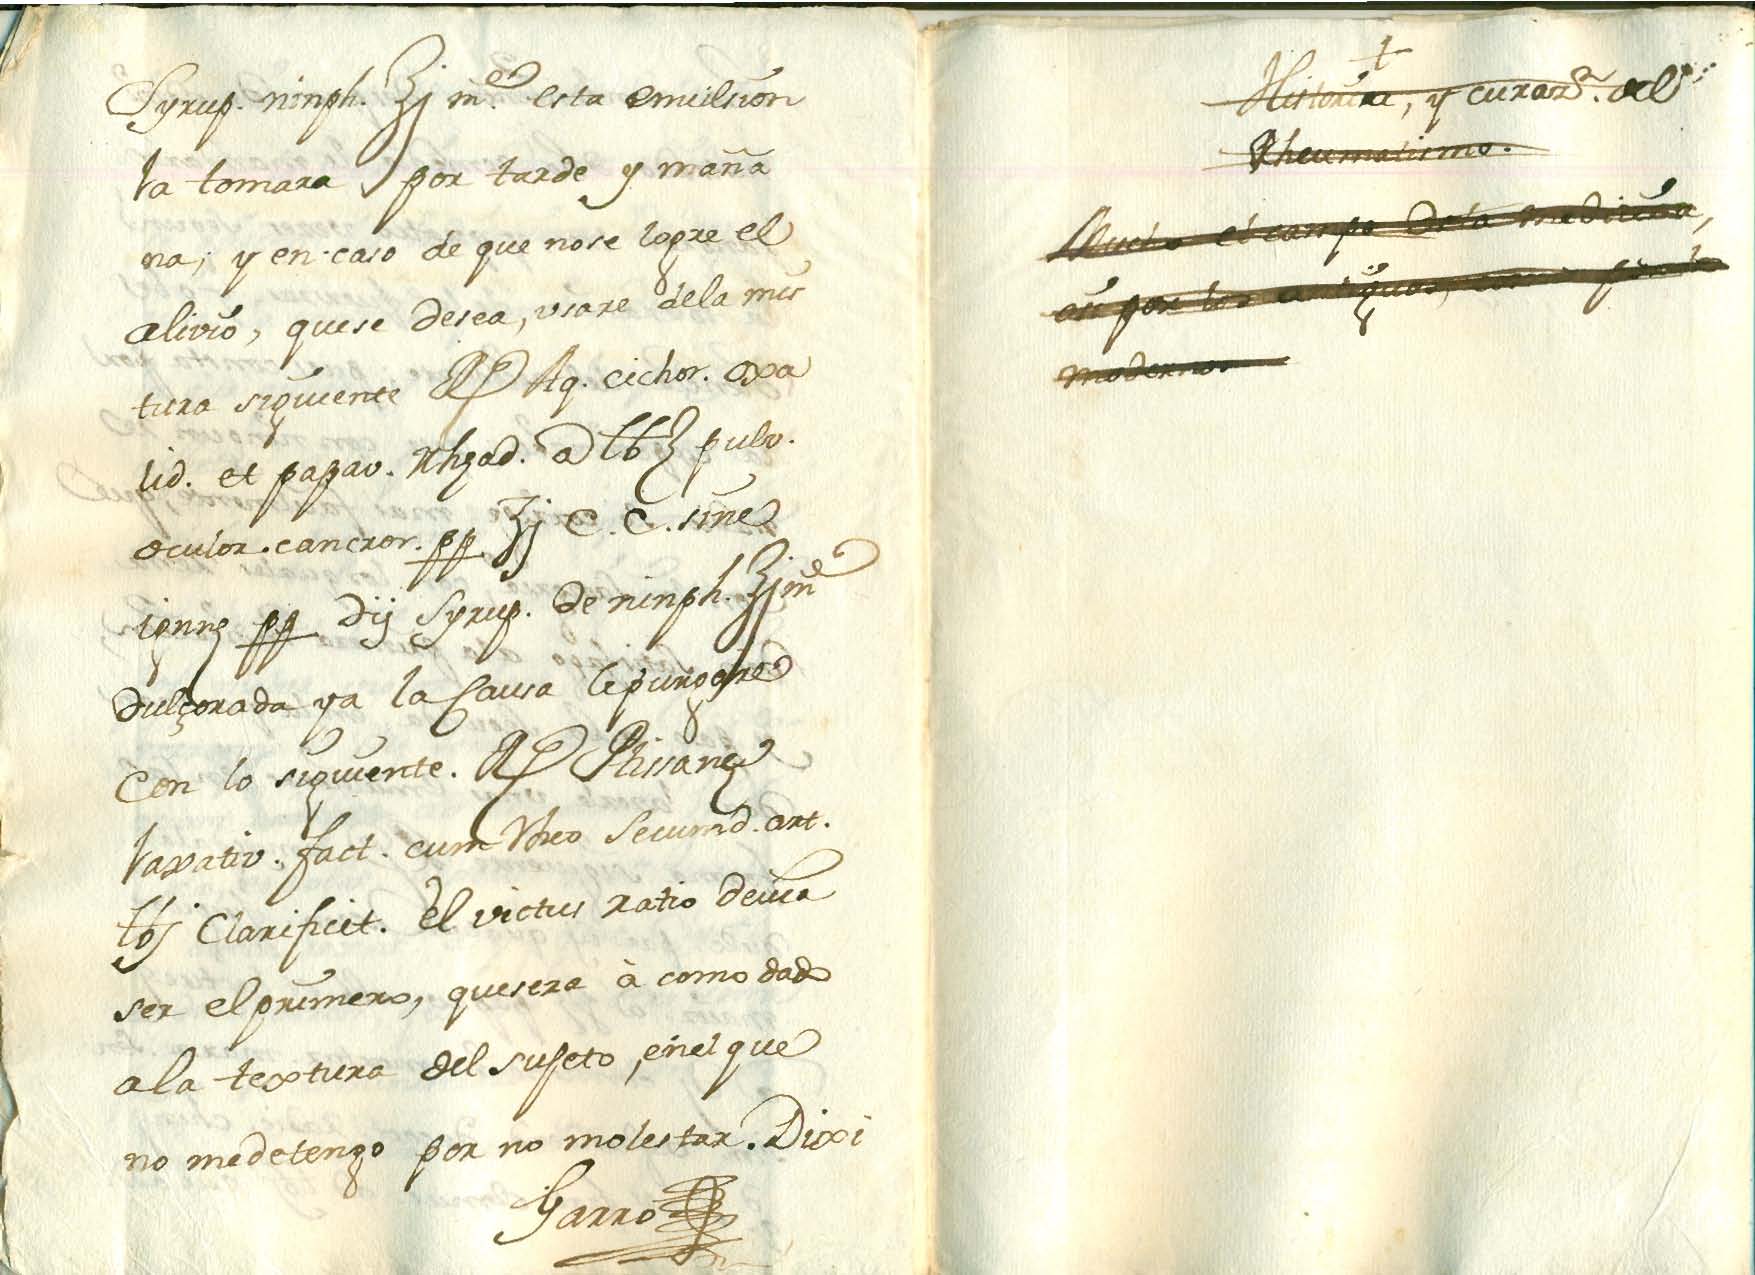 Syrup. ninph. ʒj m.e esta emulsion
la tomara por tarde y maña
na; y en caso de que nose logre el
alivio, quese desea, usare dela mis
tura siguiente Rp Aq. cichor. oxa
lid. et papav. Rhead. a lbʒ pulv.
oculor. cancror. pp ʒj C. C. sine
igne pp Dij Syrup. de ninph. ʒj me
dulçorada ya la Causa le purgare
con lo siguiente. Rp Ptissane
laxativ. fact. cum Rheo Secumd. art.
lbj Clarificet. el victus ratio devia
ser el primero, quesera à como dado
ala textura del sujeto, enel que
no medetengo por no molestar. Dixi
Garro
+
Historia, y curazn. del
Rheumatismo.
Mucho el campo dela medicina,
asi por los antiguos, como por los
modernos